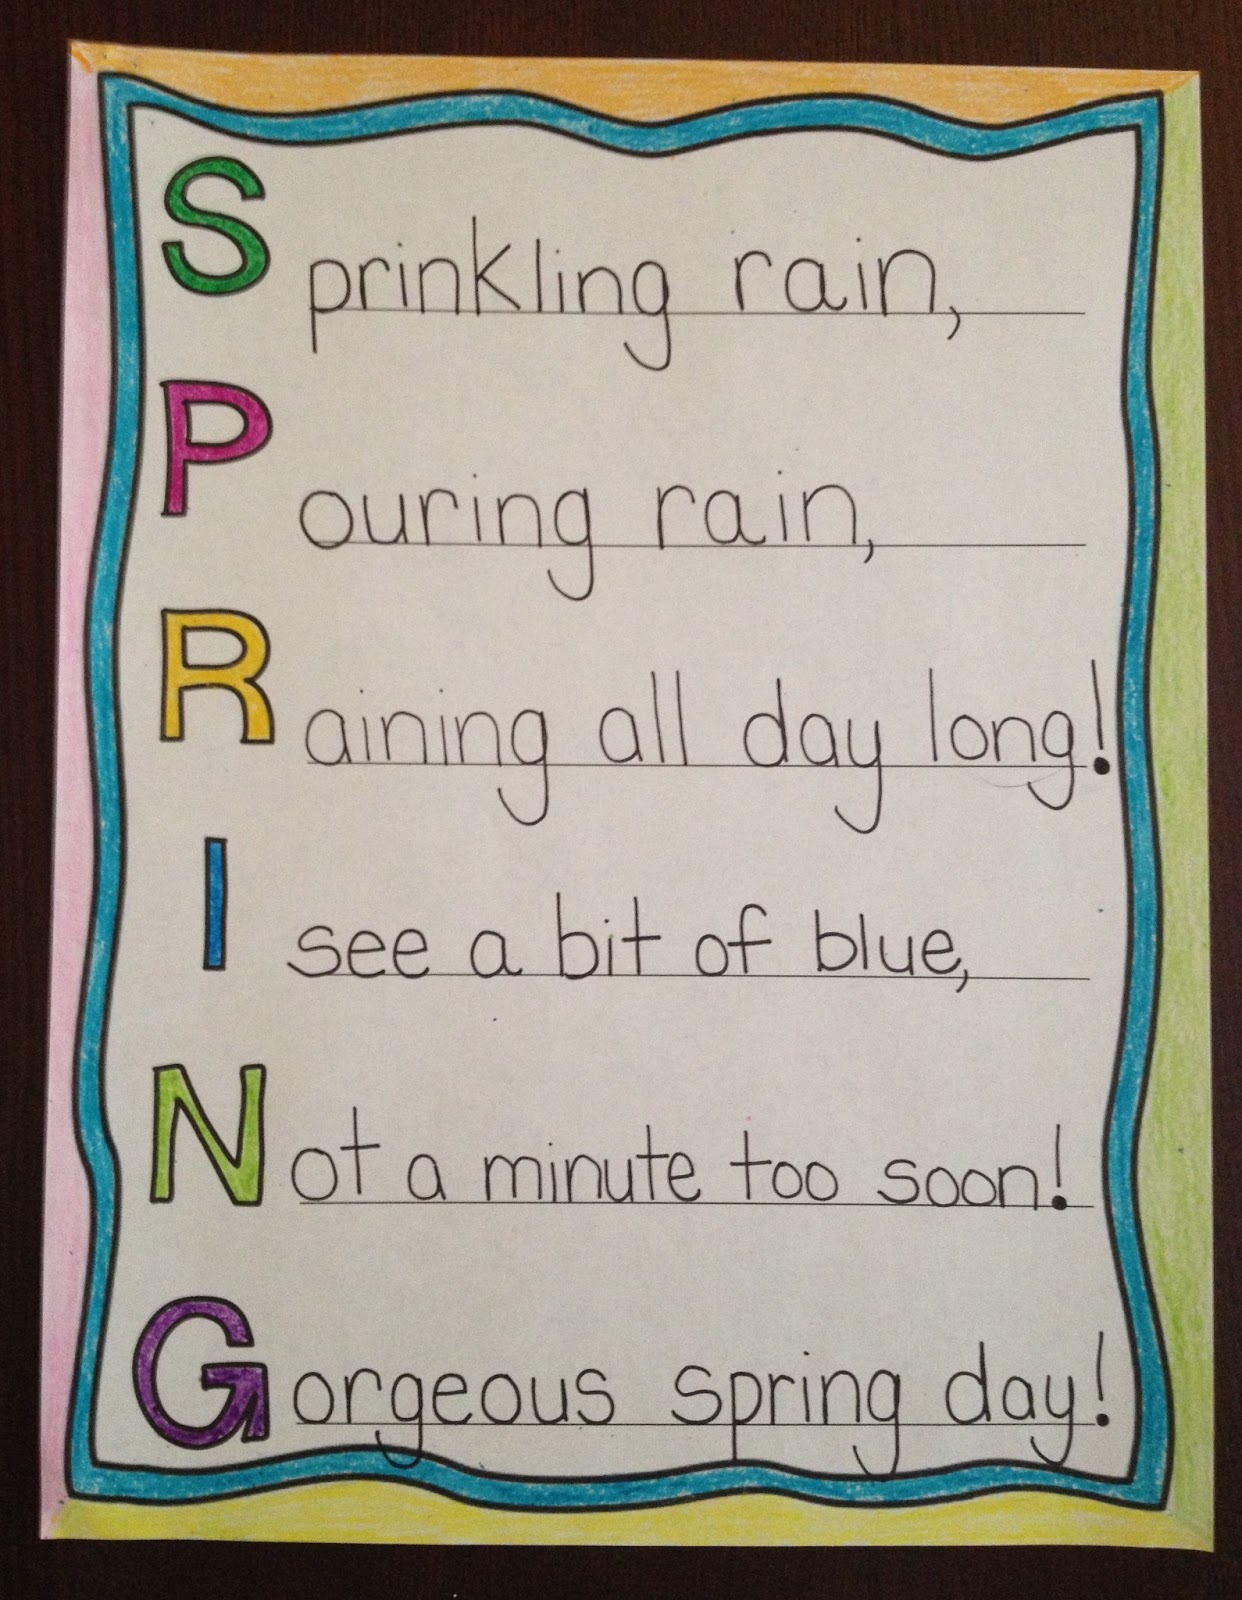 Sprinkling rain,
Pouring rain,
Raining all day long!
I see a bit of blue,
Not a minute too soon!
Gorgeous spring day!